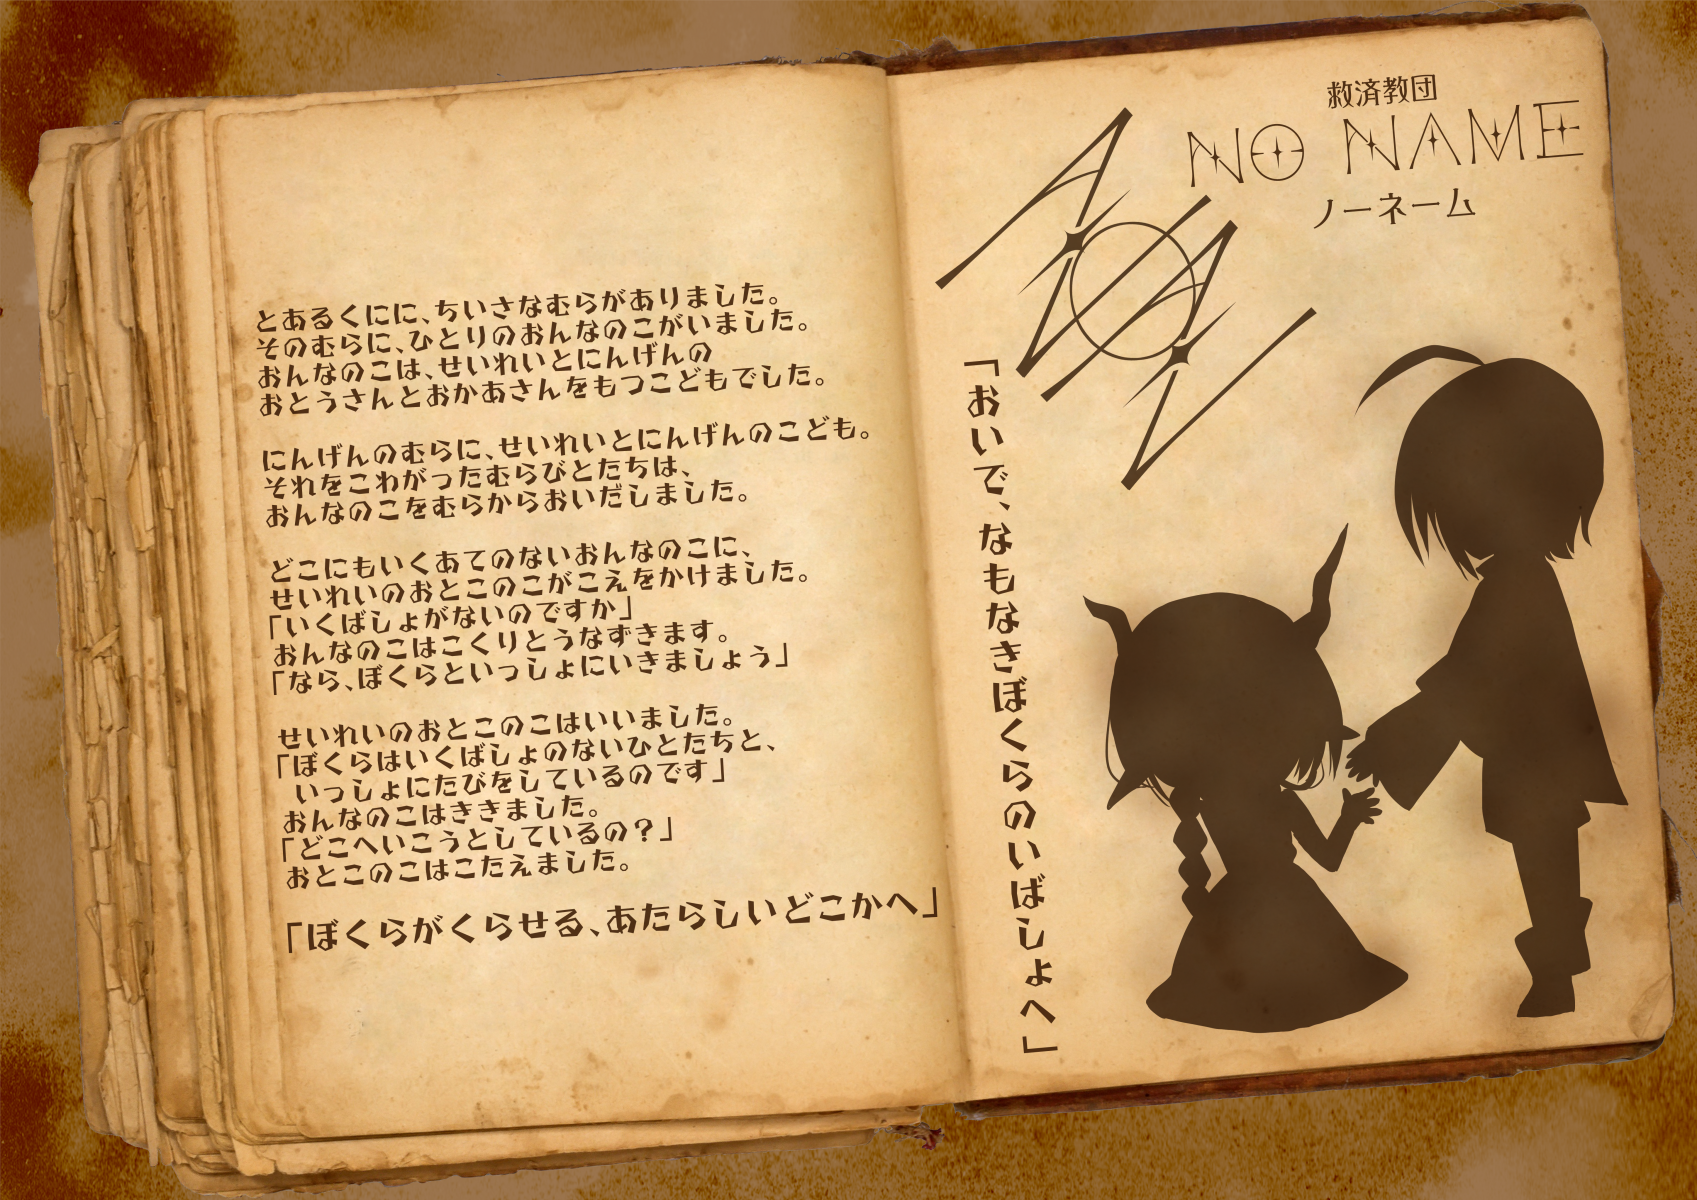 とあるくにに、ちいさなむらがありました。
そのむらに、ひとりのおんなのこがいました。
おんなのこは、せいれいとにんげんの
おとうさんとおかあさんをもつこどもでした。
にんげんのむらに、せいれいとにんげんのこども。
それをこわがったむらびとたちは、
おんなのこをむらからおいだしました。
どこにもいくあてのないおんなのこに、
せいれいのおとこのこがこえをかけました。
「いくばしょがないのですか」
おんなのこはこくりとうなずきます。
「なら、ぼくらといっしょにいきましょう」
せいれいのおとこのこはいいました。
「ぼくらはいくばしょのないひとたちと、
いっしょにたびをしているのです」
おんなのこはききました。
「どこへいこうとしているの？」
おとこのこはこたえました。
「ぼくらがくらせる、あたらしいどこかへ」
救済教団
NO NAME
ノーネーム
「おいで、なもなきぼくらのいばしょへ」